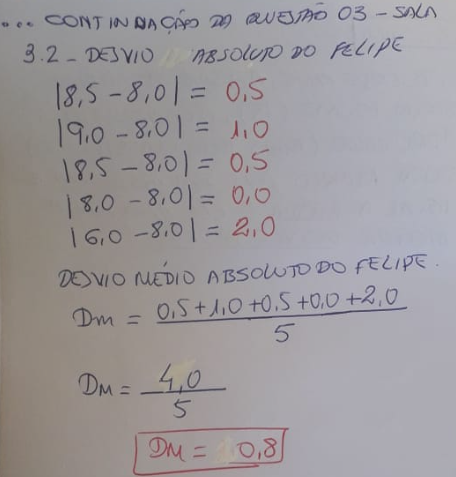 ... CONTINUAÇÃO DA QUESTÃO 03 - SALA
3.2 - DESVIO ABSOLUTO DO FELIPE
|8,5 - 8,0| = 0,5
|9,0 - 8,0| = 1,0
|8,5 - 8,0| = 0,5
|8,0 - 8,0| = 0,0
|6,0 - 8,0| = 2,0
DESVIO MÉDIO ABSOLUTO DO FELIPE.
Dm = 0,5+1,0+0,5+0,0+2,0
5
DM = 4,0
5
DM = 0,8